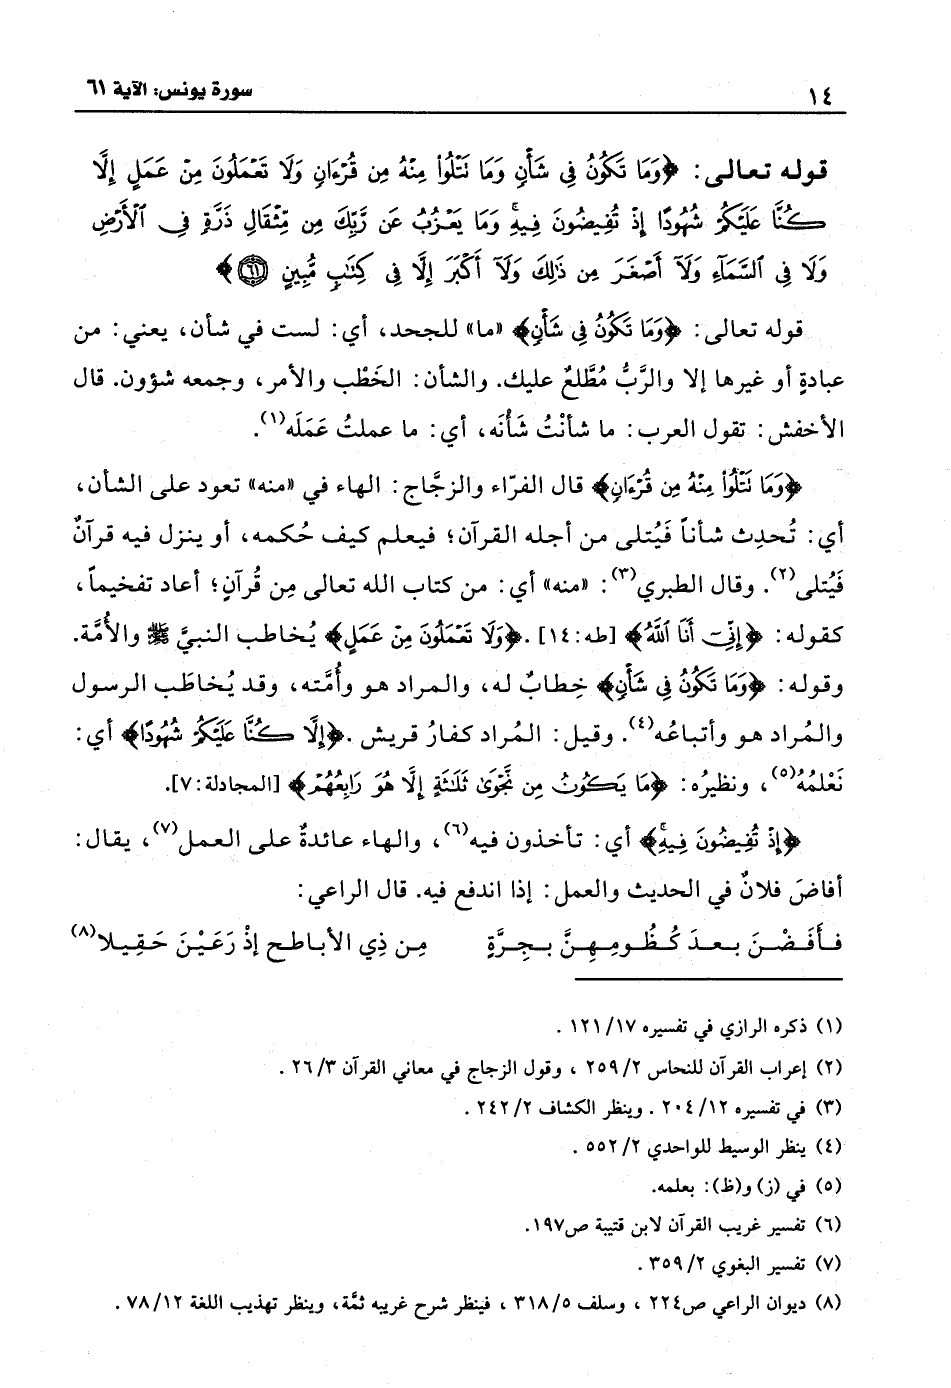 ١٤
سورة يونس: الآية ٦١
قوله تعالى: ﴿وَمَا تَكُونُ فِى شَأْنٍ وَمَا نَتْلُواْ مِنْهُ مِن قُرْءَانٍ وَلَا تَعْمَلُونَ مِنْ عَمَلٍ إِلَّا
كُنَّا عَلَيْكُمْ شُهُودًا إِذْ تُفِيضُونَ فِيهِ وَمَا يَعْزُبُ عَن رَّبِّكَ مِن مِّثْقَالِ ذَرَّةٍ فِى ٱلْأَرْضِ
وَلَا فِى ٱلسَّمَآءِ وَلَآ أَصْغَرَ مِن ذَٰلِكَ وَلَآ أَكْبَرَ إِلَّا فِى كِتَٰبٍ مُّبِينٍ ٦١﴾
قوله تعالى: ﴿وَمَا تَكُونُ فِى شَأْنٍ﴾ «ما» للجحد، أي: لست في شأن، يعني: من
عبادةٍ أو غيرها إلا والرَّبُّ مُطَّلعٌ عليك. والشأن: الخَطْب والأمر، وجمعه شؤون. قال
الأخفش: تقول العرب: ما شأنْتُ شَأْنَه، أي: ما عملتُ عَمَلَه(١).
﴿وَمَا نَتْلُواْ مِنْهُ مِن قُرْءَانٍ﴾ قال الفرّاء والزجَّاج: الهاء في «منه» تعود على الشأن،
أي: تُحدِث شأناً فَيُتلى من أجله القرآن؛ فيعلم كيف حُكمه، أو ينزل فيه قرآنٌ
فَيُتلى(٢). وقال الطبري(٣): «منه» أي: من كتاب الله تعالى مِن قُرآنٍ؛ أعاد تفخيماً،
كقوله: ﴿إِنِّىٓ أَنَا ٱللَّهُ﴾ [طه:١٤]. ﴿وَلَا تَعْمَلُونَ مِنْ عَمَلٍ﴾ يُخاطب النبيَّ ﷺ والأُمَّة.
وقوله: ﴿وَمَا تَكُونُ فِى شَأْنٍ﴾ خِطابٌ له، والمراد هو وأُمَّته، وقد يُخاطَب الرسول
والمُراد هو وأتباعُه(٤). وقيل: المُراد كفارُ قريش. ﴿إِلَّا كُنَّا عَلَيْكُمْ شُهُودًا﴾ أي:
نَعْلمُهُ(٥)، ونظيرُه: ﴿مَا يَكُونُ مِن نَّجْوَىٰ ثَلَٰثَةٍ إِلَّا هُوَ رَابِعُهُمْ﴾ [المجادلة:٧].
﴿إِذْ تُفِيضُونَ فِيهِ﴾ أي: تأخذون فيه(٦)، والهاء عائدةٌ على العمل(٧)، يقال:
أفاضَ فلانٌ في الحديث والعمل: إذا اندفع فيه. قال الراعي:
فأَفَضْنَ بعدَ كُظُومِهِنَّ بجِرَّةٍ من ذِي الأباطح إذْ رَعَيْنَ حَقِيلا(٨)
(١) ذكره الرازي في تفسيره ١٧/ ١٢١ .
(٢) إعراب القرآن للنحاس ٢/ ٢٥٩ ، وقول الزجاج في معاني القرآن ٣/ ٢٦ .
(٣) في تفسيره ١٢/ ٢٠٤ . وينظر الكشاف ٢/ ٢٤٢ .
(٤) ينظر الوسيط للواحدي ٢/ ٥٥٢ .
(٥) في (ز) و(ظ): بعلمه.
(٦) تفسير غريب القرآن لابن قتيبة ص١٩٧.
(٧) تفسير البغوي ٢/ ٣٥٩ .
(٨) ديوان الراعي ص٢٢٤ ، وسلف ٥/ ٣١٨ ، فينظر شرح غريبه ثمَّة، وينظر تهذيب اللغة ١٢/ ٧٨ .